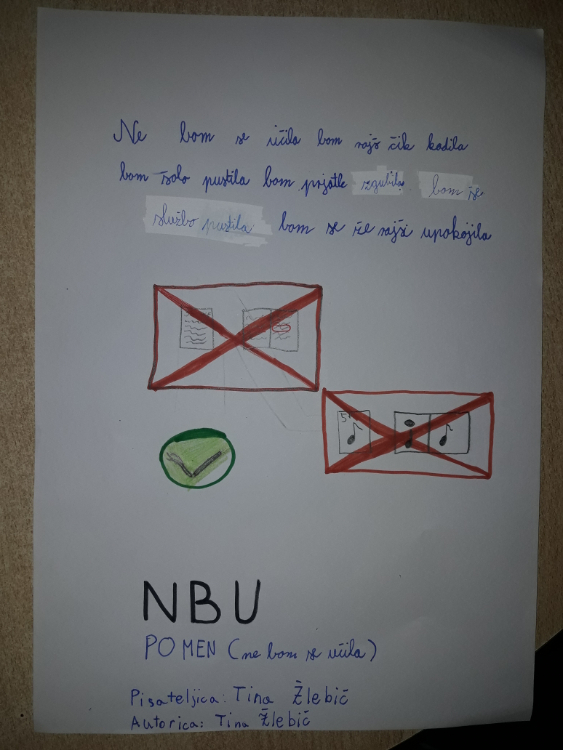 Ne bom se učila bom rajš čik kadila
bom šolo pustila bom prjatle izgubila bom še
službo pustila bom se še rajši upokojila
5+
NBU
POMEN (ne bom se učila)
Pisateljica: Tina Žlebič
Autorica: Tina Žlebič